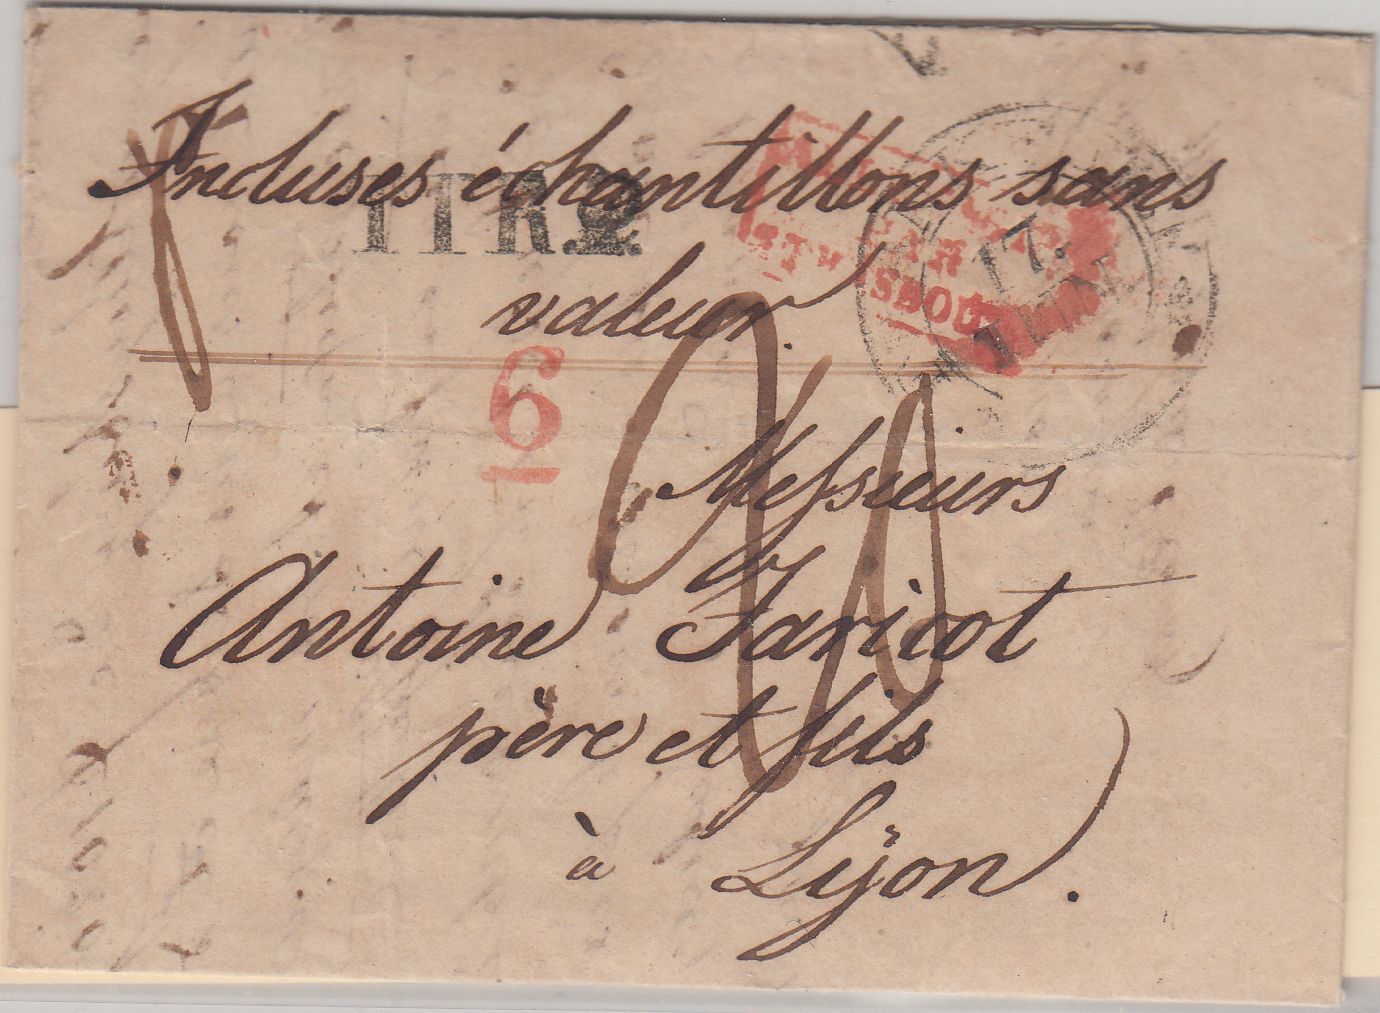 Incluses échantillons sans
valeur.
17.
6
Messieurs
Antoine Faricot
père et fils
à Lÿon.